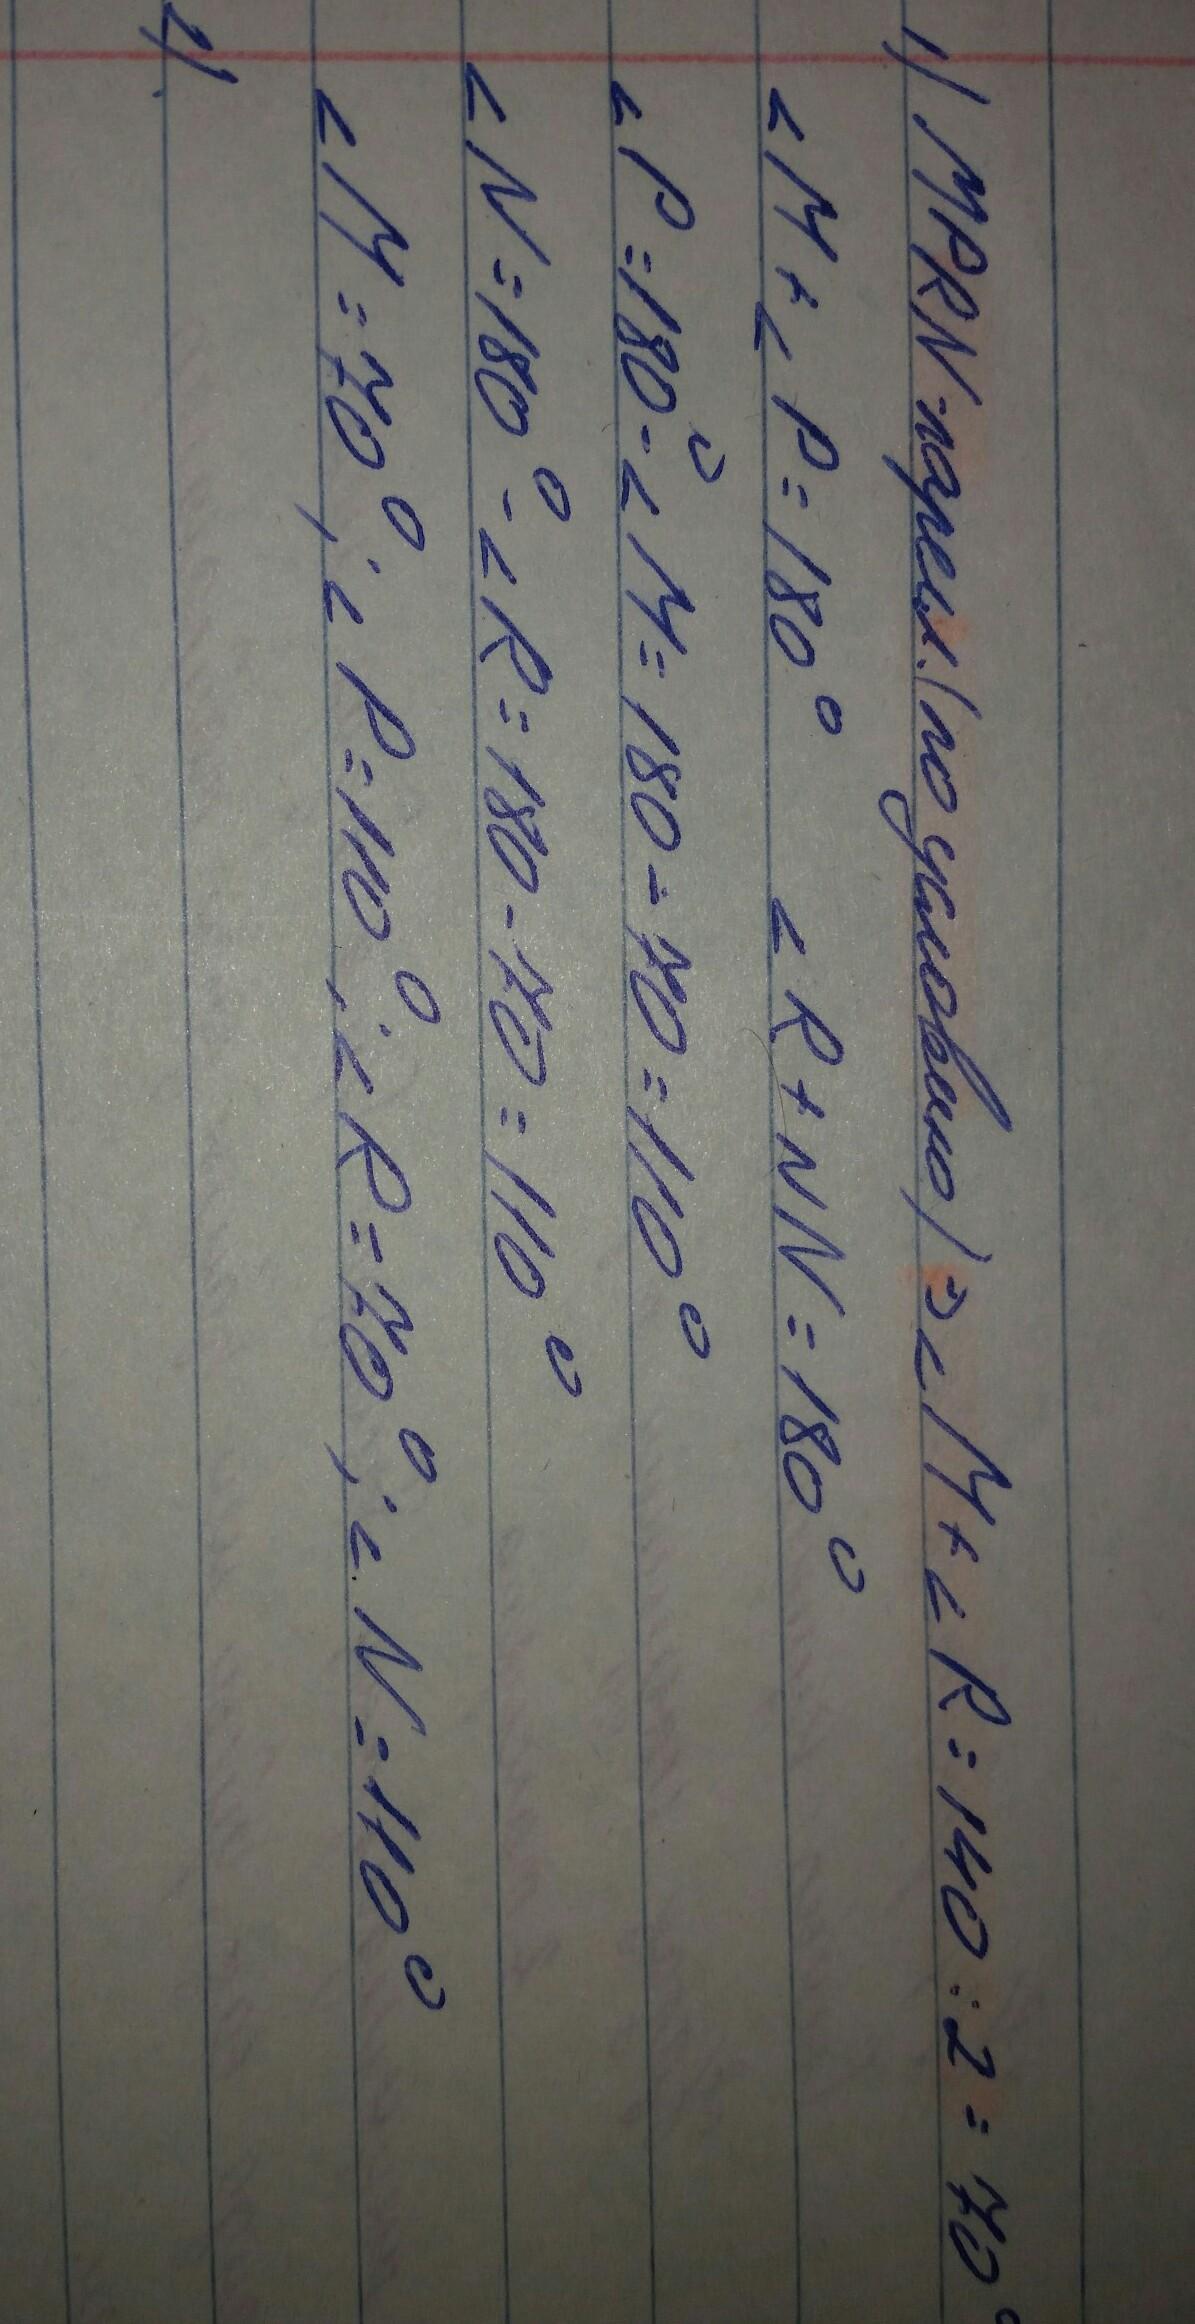 1) MPRN-парел.(по условию)⇒∠M+∠R=140:2=70°
∠M+∠P=180° ∠R+NN=180°
∠P=180°-∠M=180-70=110°
∠N=180°-∠R=180-70=110°
∠M=70°,;∠P=110°,;∠R=70°,;∠N=110°
2).